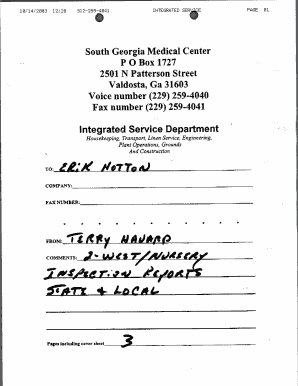 10/14/2003 12:20 912-259-4041 INTEGRATED SERVICE PAGE 01
South Georgia Medical Center
P O Box 1727
2501 N Patterson Street
Valdosta, Ga 31603
Voice number (229) 259-4040
Fax number (229) 259-4041
Integrated Service Department
Housekeeping, Transport, Linen Service, Engineering,
Plant Operations, Grounds
And Construction
TO: ERIK NOTTON
COMPANY:
FAX NUMBER:
FROM: TERRY HAVARD
COMMENTS: 2-WEST/NURSERY
INSPECTION REPORTS
STATE & LOCAL
Pages including cover sheet 3